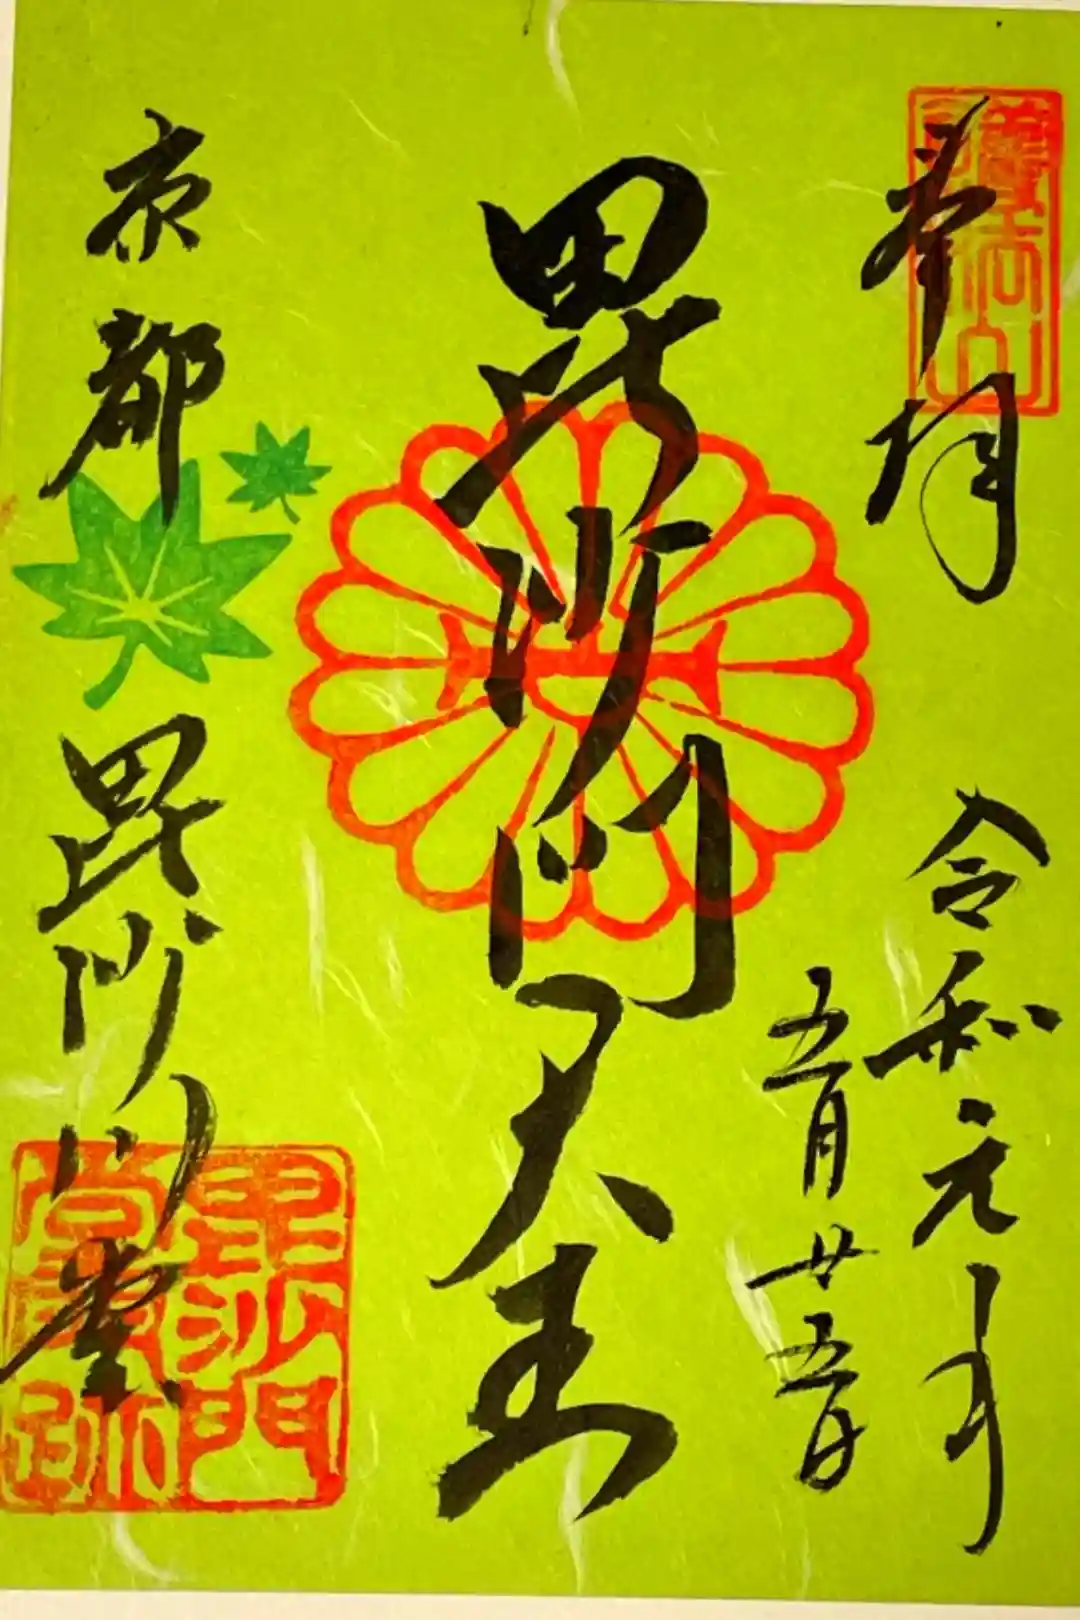 奉拝
護法山
令和元年
五月廿五日
毘沙門天王
京都
毘沙門堂
毘沙門
堂門跡